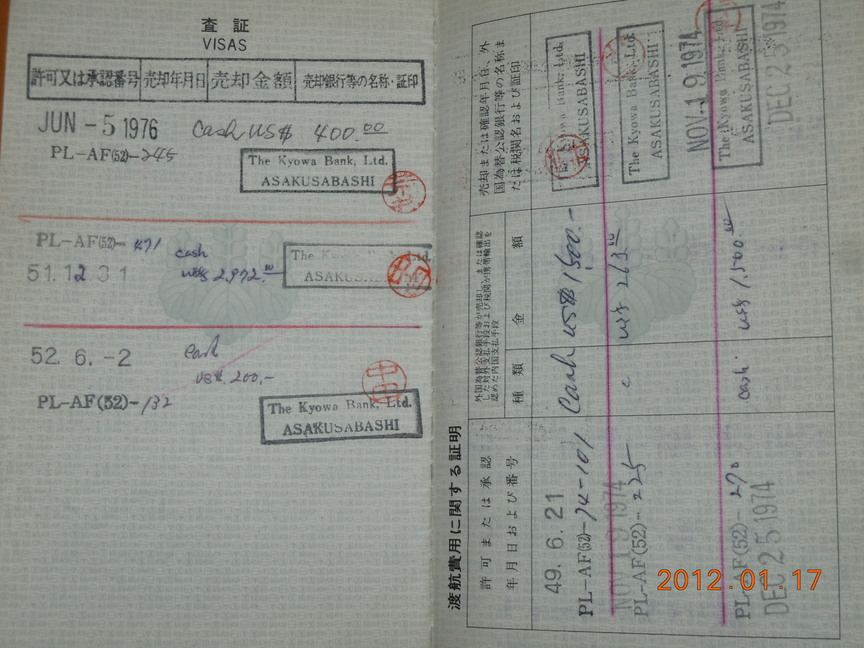 査証
VISAS
許可又は承認番号 売却年月日 売却金額 売却銀行等の名称・証印
JUN -5 1976 Cash US$ 400.00
PL-AF(52)-245
The Kyowa Bank, Ltd.
ASAKUSABASHI
PL-AF(52)- 471
cash
51.12.31 US$ 2,972.00
The Kyowa Bank, Ltd.
ASAKUSABASHI
52. 6. -2 Cash
US$ 200.-
PL-AF(52)-132
The Kyowa Bank, Ltd.
ASAKUSABASHI
渡航費用に関する証明
許可または承認
年月日および番号
外国為替公認銀行等が売却しまたは確認
した対外支払手段および税関が携帯輸出を
認めた内国支払手段
種類
金額
売却または確認年月日、外
国為替公認銀行等の名称ま
たは税関名および証印
49. 6. 21
PL-AF(52)-74-101
Cash US$ 1,500.-
The Kyowa Bank, Ltd.
ASAKUSABASHI
NOV 19 1974
PL-AF(52)- 225
US$ 263.00
The Kyowa Bank, Ltd.
ASAKUSABASHI
NOV 19 1974
PL-AF(52)- 270
DEC 25 1974
cash. US$ 1,500.00
The Kyowa Bank, Ltd.
ASAKUSABASHI
DEC 25 1974
2012.01.17